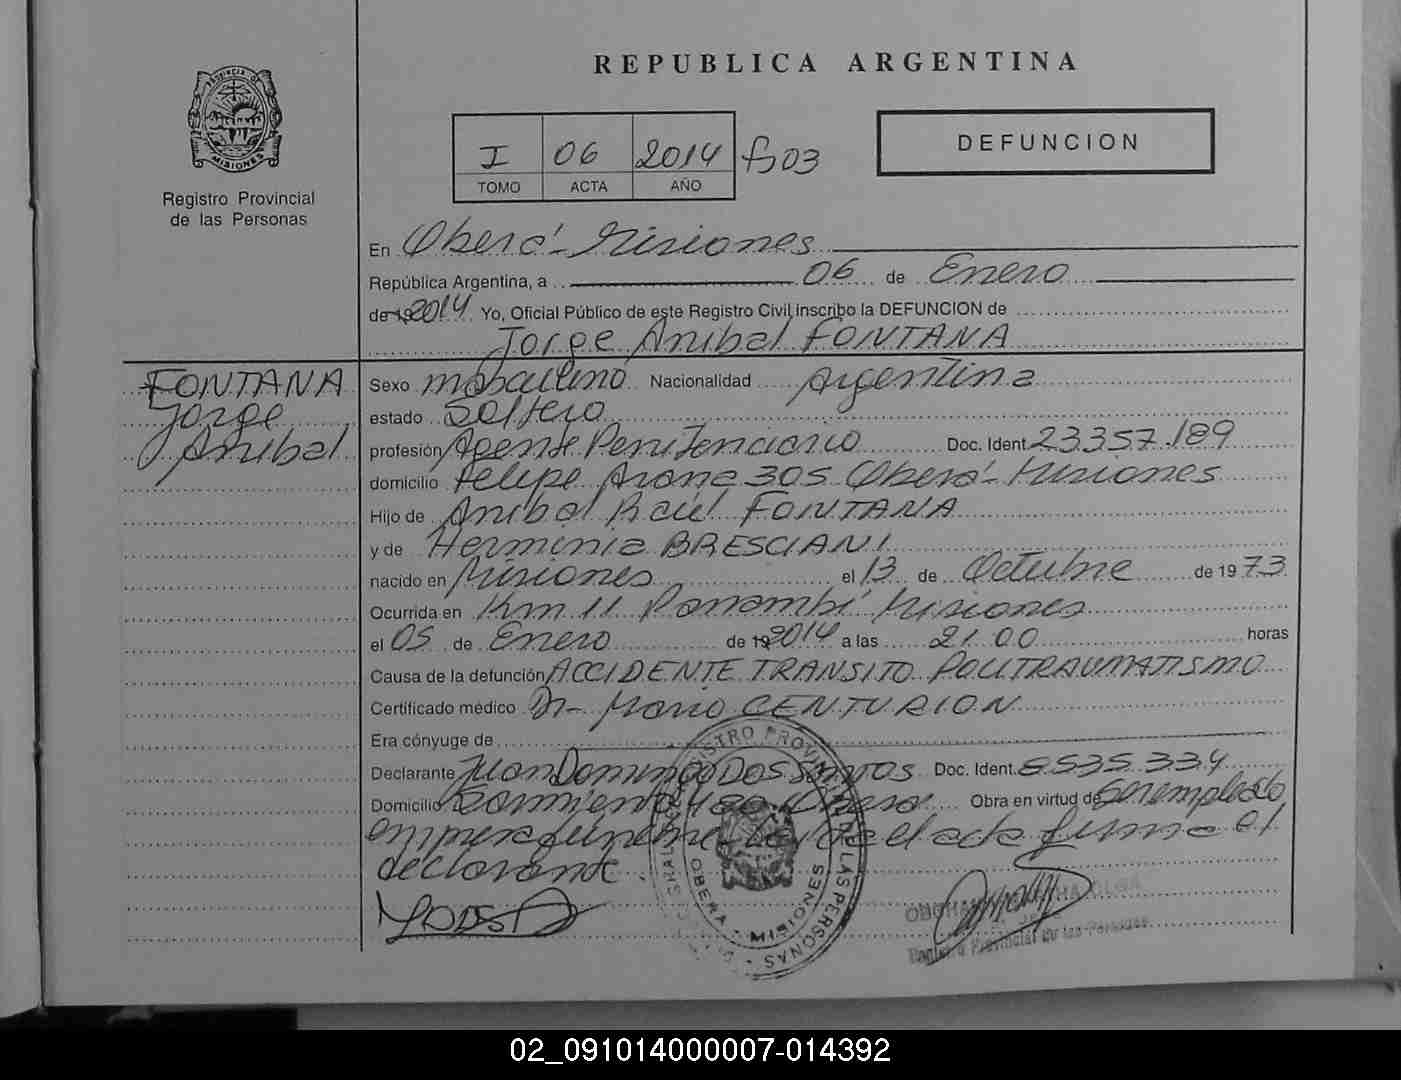 REPUBLICA ARGENTINA
PROVINCIA DE MISIONES
Registro Provincial
de las Personas
I 06 2014 fº 03
TOMO ACTA AÑO
DEFUNCION
En Oberá - Misiones
República Argentina, a 06 de Enero
de 19 2014 Yo, Oficial Público de este Registro Civil, inscribo la DEFUNCION de
Jorge Anibal FONTANA
FONTANA
Jorge
Anibal
Sexo masculino Nacionalidad Argentina
estado Soltero
profesión Agente Penitenciario Doc. Ident. 23.357.189
domicilio Felipe Arana 305 Oberá - Misiones
Hijo de Anibal Raúl FONTANA
y de Herminia BRESCIANI
nacido en Misiones el 13 de Octubre de 1973
Ocurrida en Km 11 Panambí Misiones
el 05 de Enero de 19 2014 a las 21.00 horas
Causa de la defunción ACCIDENTE TRANSITO POLITRAUMATISMO
Certificado médico Dr - Mario CENTURION
Era cónyuge de
Declarante Juan Domingo DOS Santos Doc. Ident. 8535.334
Domicilio Sarmiento Obera Obra en virtud de ser empleado
empresa el acta firma el
declarante
REGISTRO PROVINCIAL DE LAS PERSONAS
OBERA - MISIONES
Registro Provincial de las Personas
02_091014000007-014392